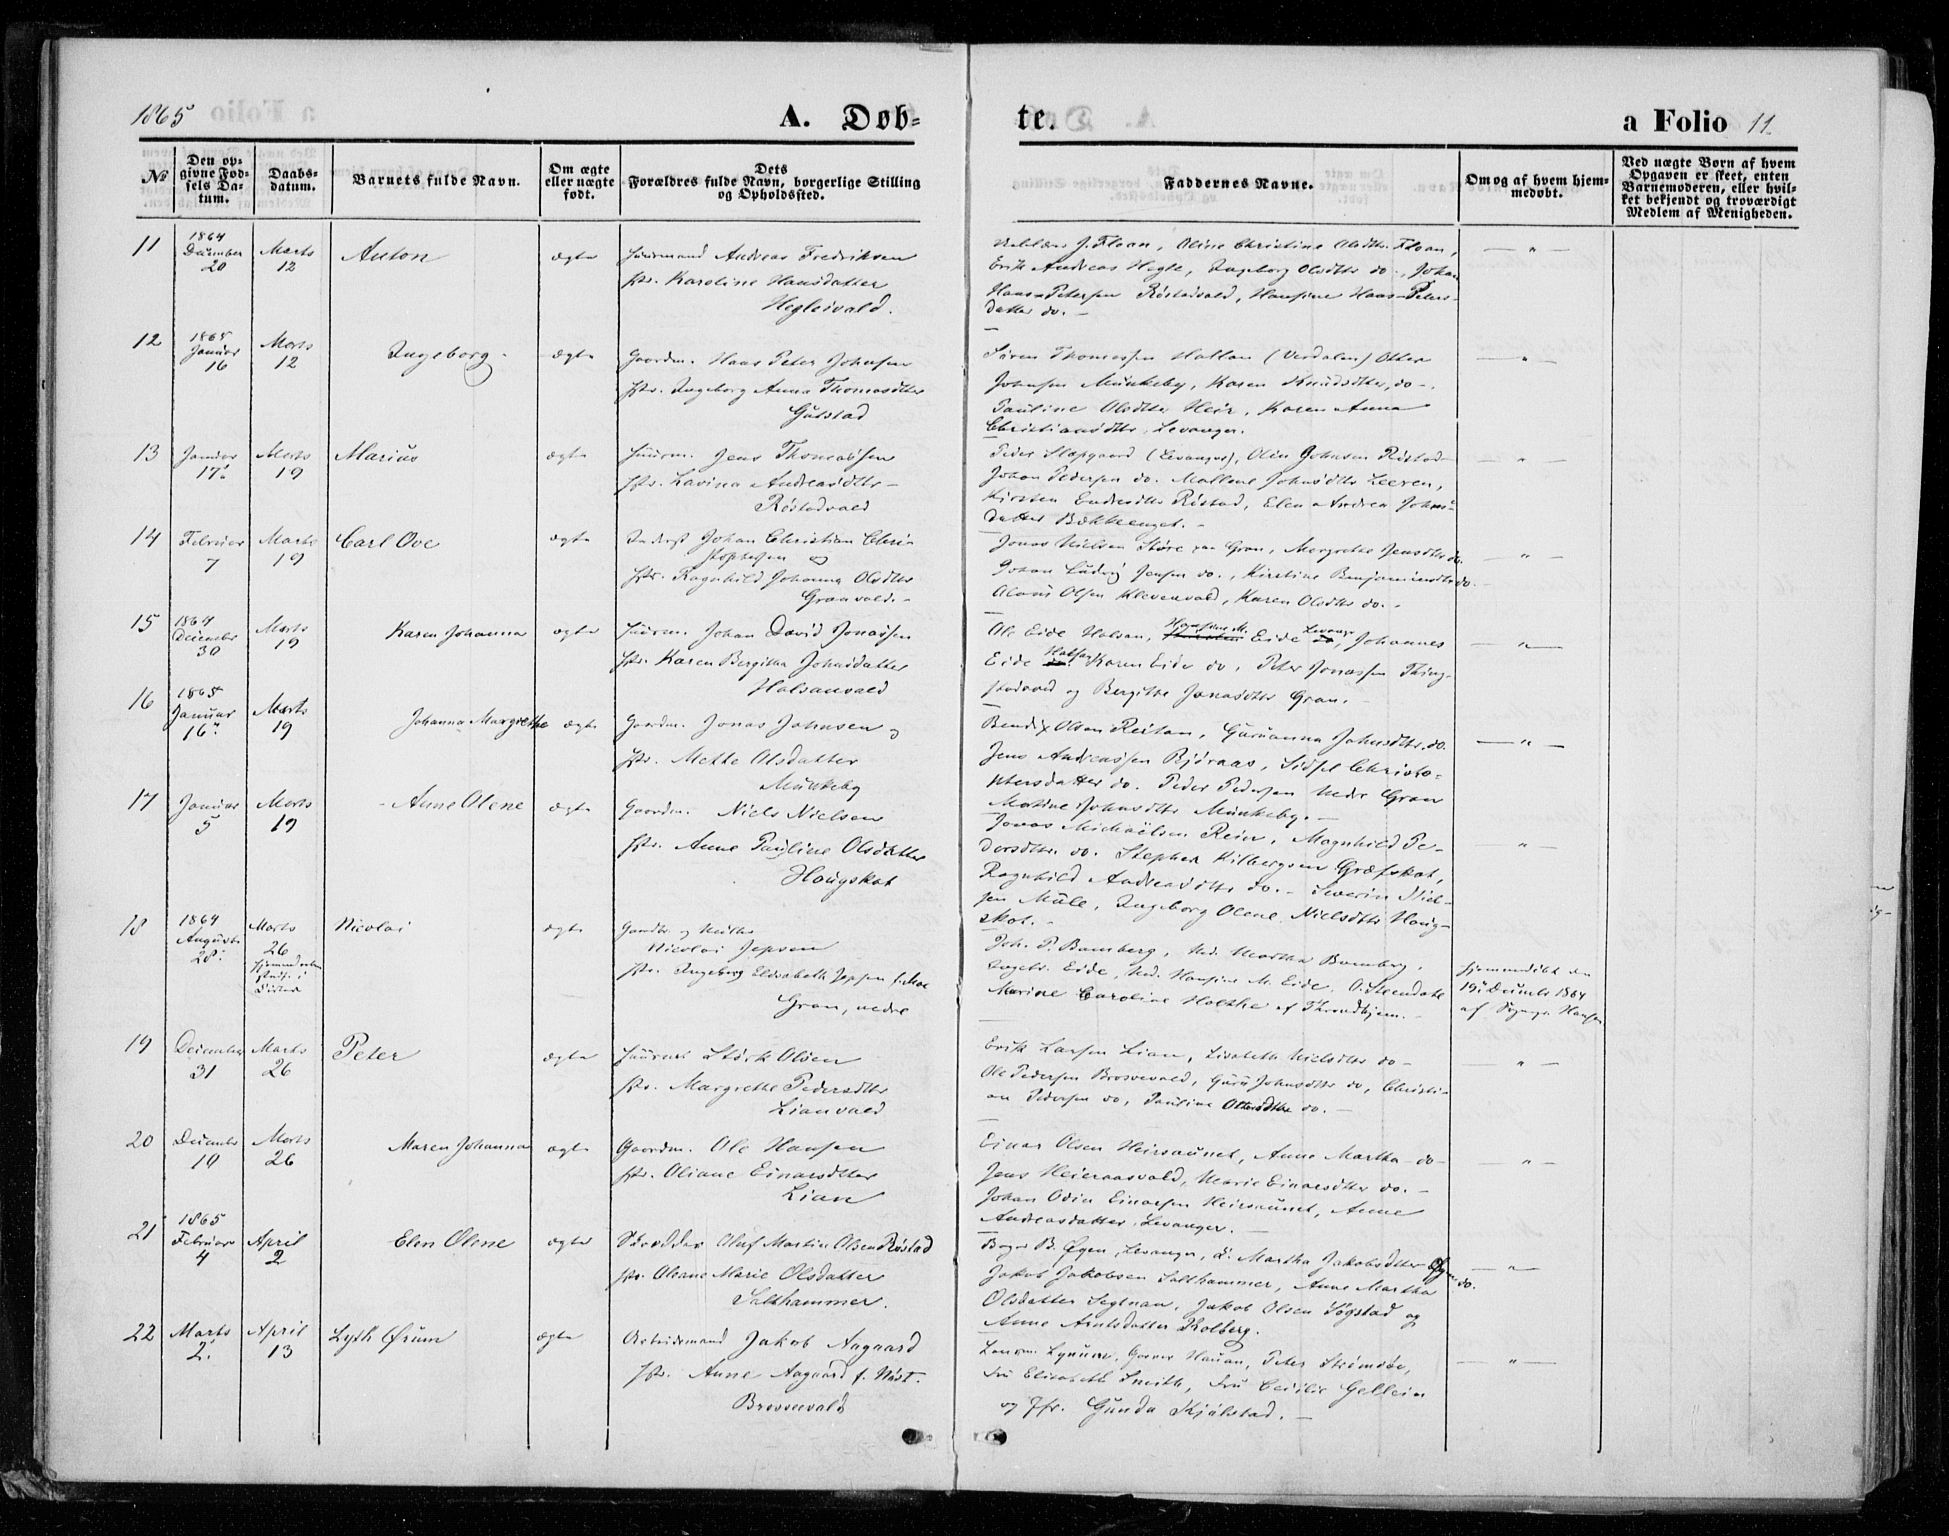 1865 A. Døb= te. a Folio 11.
№
Den op=
givne Fød=
sels Da=
tum.
Daabs=
datum.
Barnets fulde Navn.
Om ægte
eller uægte
født.
Dets
Forældres fulde Navn, borgerlige Stilling
og Opholdssted.
Faddernes Navne.
Om og af hvem hjem=
medøbt.
Ved uægte Børn af hvem
Opgaven er skeet, enten
Barnemoderen, eller hvil=
ket bekjendt og troværdigt
Medlem af Menigheden.
11
1864
December
20
Marts
12
Anton
ægte
Huusmand Andreas Fredriksen
Htr. Karoline Hansdatter
Hegleivald.
J. Floan, Oline Christine Olsdtr. Floan,
Erik Andreas Hegle, Ingeborg Olsdtr do., Johan
Hans Petersen Røstadvald, Hansine Hans Peters-
datter do. -
- " -
12
1865
Januar
16
Marts
12
Ingeborg
ægte
Gaardm. Hans Peter Johnsen
Htr. Ingeborg Anna Thomasdtr
Gulstad
Søren Thomassen Hallan (Verdalen) Otter
Johnsen Munkeby, Karen Knudsdtter, do -.
Pauline Olsdtter Heir, Karen Anna
Christiansdtr. Levanger.
- " -
13
Januar
17.
Marts
19
Marius
ægte
Huusm. Jens Thomassen
Htr. Lavina Andreasdtr -
Røstadvald
Peder Stapgaard (Levanger), Olin Johnsen Røstad
Johan Pedersen do. Mallene Johnsdtr Leeren,
Kirsten Endresdtr Røstad, Elen Andrea Johns-
datter Bækkeenget. -
- " -
14
Februar
7
Marts
19
Carl Ove
ægte
Inderst Johan Christian Chri-
stophersen og
Htr. Ragnhild Johanna Olsdtr
Granvald. -
Jonas Nielsen Støre paa Gran, Margrethe Jensdtr do.
Johan Ludvig Jensen do., Kirstine Benjaminsdtr do.
Olaus Olsen Klevenvald, Karen Olsdtr do. -
- " -
15
1864
December
30
Marts
19
Karen Johanna
ægte
Huusm. Johan David Jonassen
Htr. Karen Bergitha Johnsdatter
Halsanvald
Ole Eide Halsan, Hansine M. Eide Levanger, Johannes
Eide Halsan Karen Eide do, Peter Jonassen Thing-
stadvald og Bergitte Jonasdtr Gran.
- " -
16
1865
Januar
16.
Marts
19
Johanna Margrethe
ægte
Gaardm. Jonas Johnsen og
Htr. Mette Olsdatter
Munkeby
Bendix Olsen Reitan, Gurianna Johnsdtr. do.
Jens Andreassen Bjøraas, Sidsel Christo=
phersdatter do. Peder Pedersen nedre Gran
Martine Johnsdtr Munkeby. -
- " -
17
Januar
5
Marts
19
Anne Olene
ægte
Gaardm. Niels Nielsen
Htr. Anne Pauline Olsdatter
Hougskot
Jonas Michaelsen Reier, Magnhild Pe-
dersdtr. do. Stephen Kilbergsen Græfskot,
Ragnhild Andreasdtr do. - Severin Niel-
sen Mule, Ingeborg Olene Nielsdtr Houg-
skot. -
"
18
1864
August
28.
Marts
26
Nicolai
ægte
Nicolai Jepsen
Htr. Ingeborg Elisabeth Jeppsen f. Moe
Gran, nedre
Joh. P. Bamberg, Mad. Martha Bamberg,
Eide, Mad. Hansine M. Eide, O. Steendahl
Marine Caroline Holthe af Throndhjem. -
Hjemmedøbt den
19. Decembr 1864
af Hansen
19
December
31
Marts
26
Peter
ægte
Størk Olsen
Htr. Margrethe Pedersdtr
Lianvald
Erik Larsen Lian, Lisabeth Nielsdtr do -
Ole Pedersen Brosvevald, Guru Johnsdtr do, Christi-
an Pedersen do, Pauline Ottersdtr do. -
- " -
20
December
19
Marts
26
Maren Johanna
ægte
Gaardm. Ole Hansen
Htr. Oliane Einarsdtter
Lian
Einar Olsen Heirsaunet, Anne Martha do -
Jens Heieraasvald, Marie Einarsdtter do. -
Johan Odin Einarsen Heirsaunet, Anne
Andreasdatter, Levanger. -
- " -
21
1865
Februar
4
April
2
Elen Olene
ægte
Skrædder Oluf Martin Olsen Røstad
Htr. Oleane Marie Olsdatter
Salthammer.
B. Øgen, Levanger, Martha Jakobsdtter Øgen do.
Jakob Jakobsen Salthammer, Anne Martha
Olsdatter Segtnan, Jakob Olsen Søgstad og
Anne Arntsdatter Kolberg.
- " -
22
Marts
2.
April
13
Lyth Ørum
ægte
Arbeidsmand Jakob Aagaard
Htr. Anne Aagaard f. Næst.
Brosvevald
Lynum, Hauan, Peter Strømsøe,
Fru Elisabeth Smith, Fru Cecilie Gellein
og Jfr. Gunda Kjølstad. -
- " -